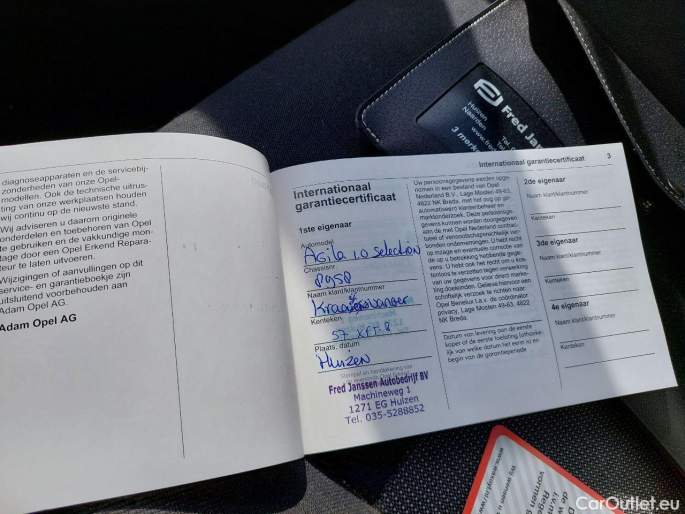 diagnoseapparaten en de servicebij-
zonderheden van onze Opel-
modellen. Ook de technische uitrus-
ting van onze werkplaatsen houden
wij continu op de nieuwste stand.
Wij adviseren u daarom originele
onderdelen en toebehoren van Opel
te gebruiken en de vakkundige mon-
tage door een Opel Erkend Repara-
teur te laten uitvoeren.
Wijzigingen of aanvullingen op dit
service- en garantieboekje zijn
uitsluitend voorbehouden aan
Adam Opel AG.
Adam Opel AG
Internationaal garantiecertificaat 3
Internationaal
garantiecertificaat
1ste eigenaar
Automodel
Agila 1.0 Selection
Chassisnr.
Naam klant/klantnummer
Kenteken
57
Plaats, datum
Huizen
Stempel en handtekening van
Fred Janssen Autobedrijf BV
Machineweg 1
1271 EG Huizen
Tel. 035-5288852
Uw persoonsgegevens worden opge-
nomen in een bestand van Opel
Nederland B.V., Lage Mosten 49-63,
4822 NK Breda, met het oog op ge-
automatiseerd klantenbeheer en
marktonderzoek. Deze persoonsge-
gevens kunnen worden doorgegeven
aan de met Opel Nederland contrac-
tueel of vennootschapsrechtelijk ver-
bonden ondernemingen. U hebt recht
op inzage en eventuele correctie van
de op u betrekking hebbende gege-
vens. U hebt ook het recht om u kos-
teloos te verzetten tegen verwerking
van uw gegevens voor direct marke-
ting doeleinden. Gelieve hiervoor een
schriftelijk verzoek te richten naar:
Opel Benelux t.a.v. de coördinator
privacy, Lage Mosten 49-63, 4822
NK Breda.
Datum van levering aan de eerste
koper of de eerste toelating (afhanke-
lijk van welke datum het eerst is) en
begin van de garantieperiode
2de eigenaar
Naam klant/klantnummer
Kenteken
3de eigenaar
Naam klant/klantnummer
Kenteken
4e eigenaar
Naam klant/klantnummer
Kenteken
Fred Jans
Huizen
Naarden
Tel.
www.fre
3 merk
CarOutlet.eu